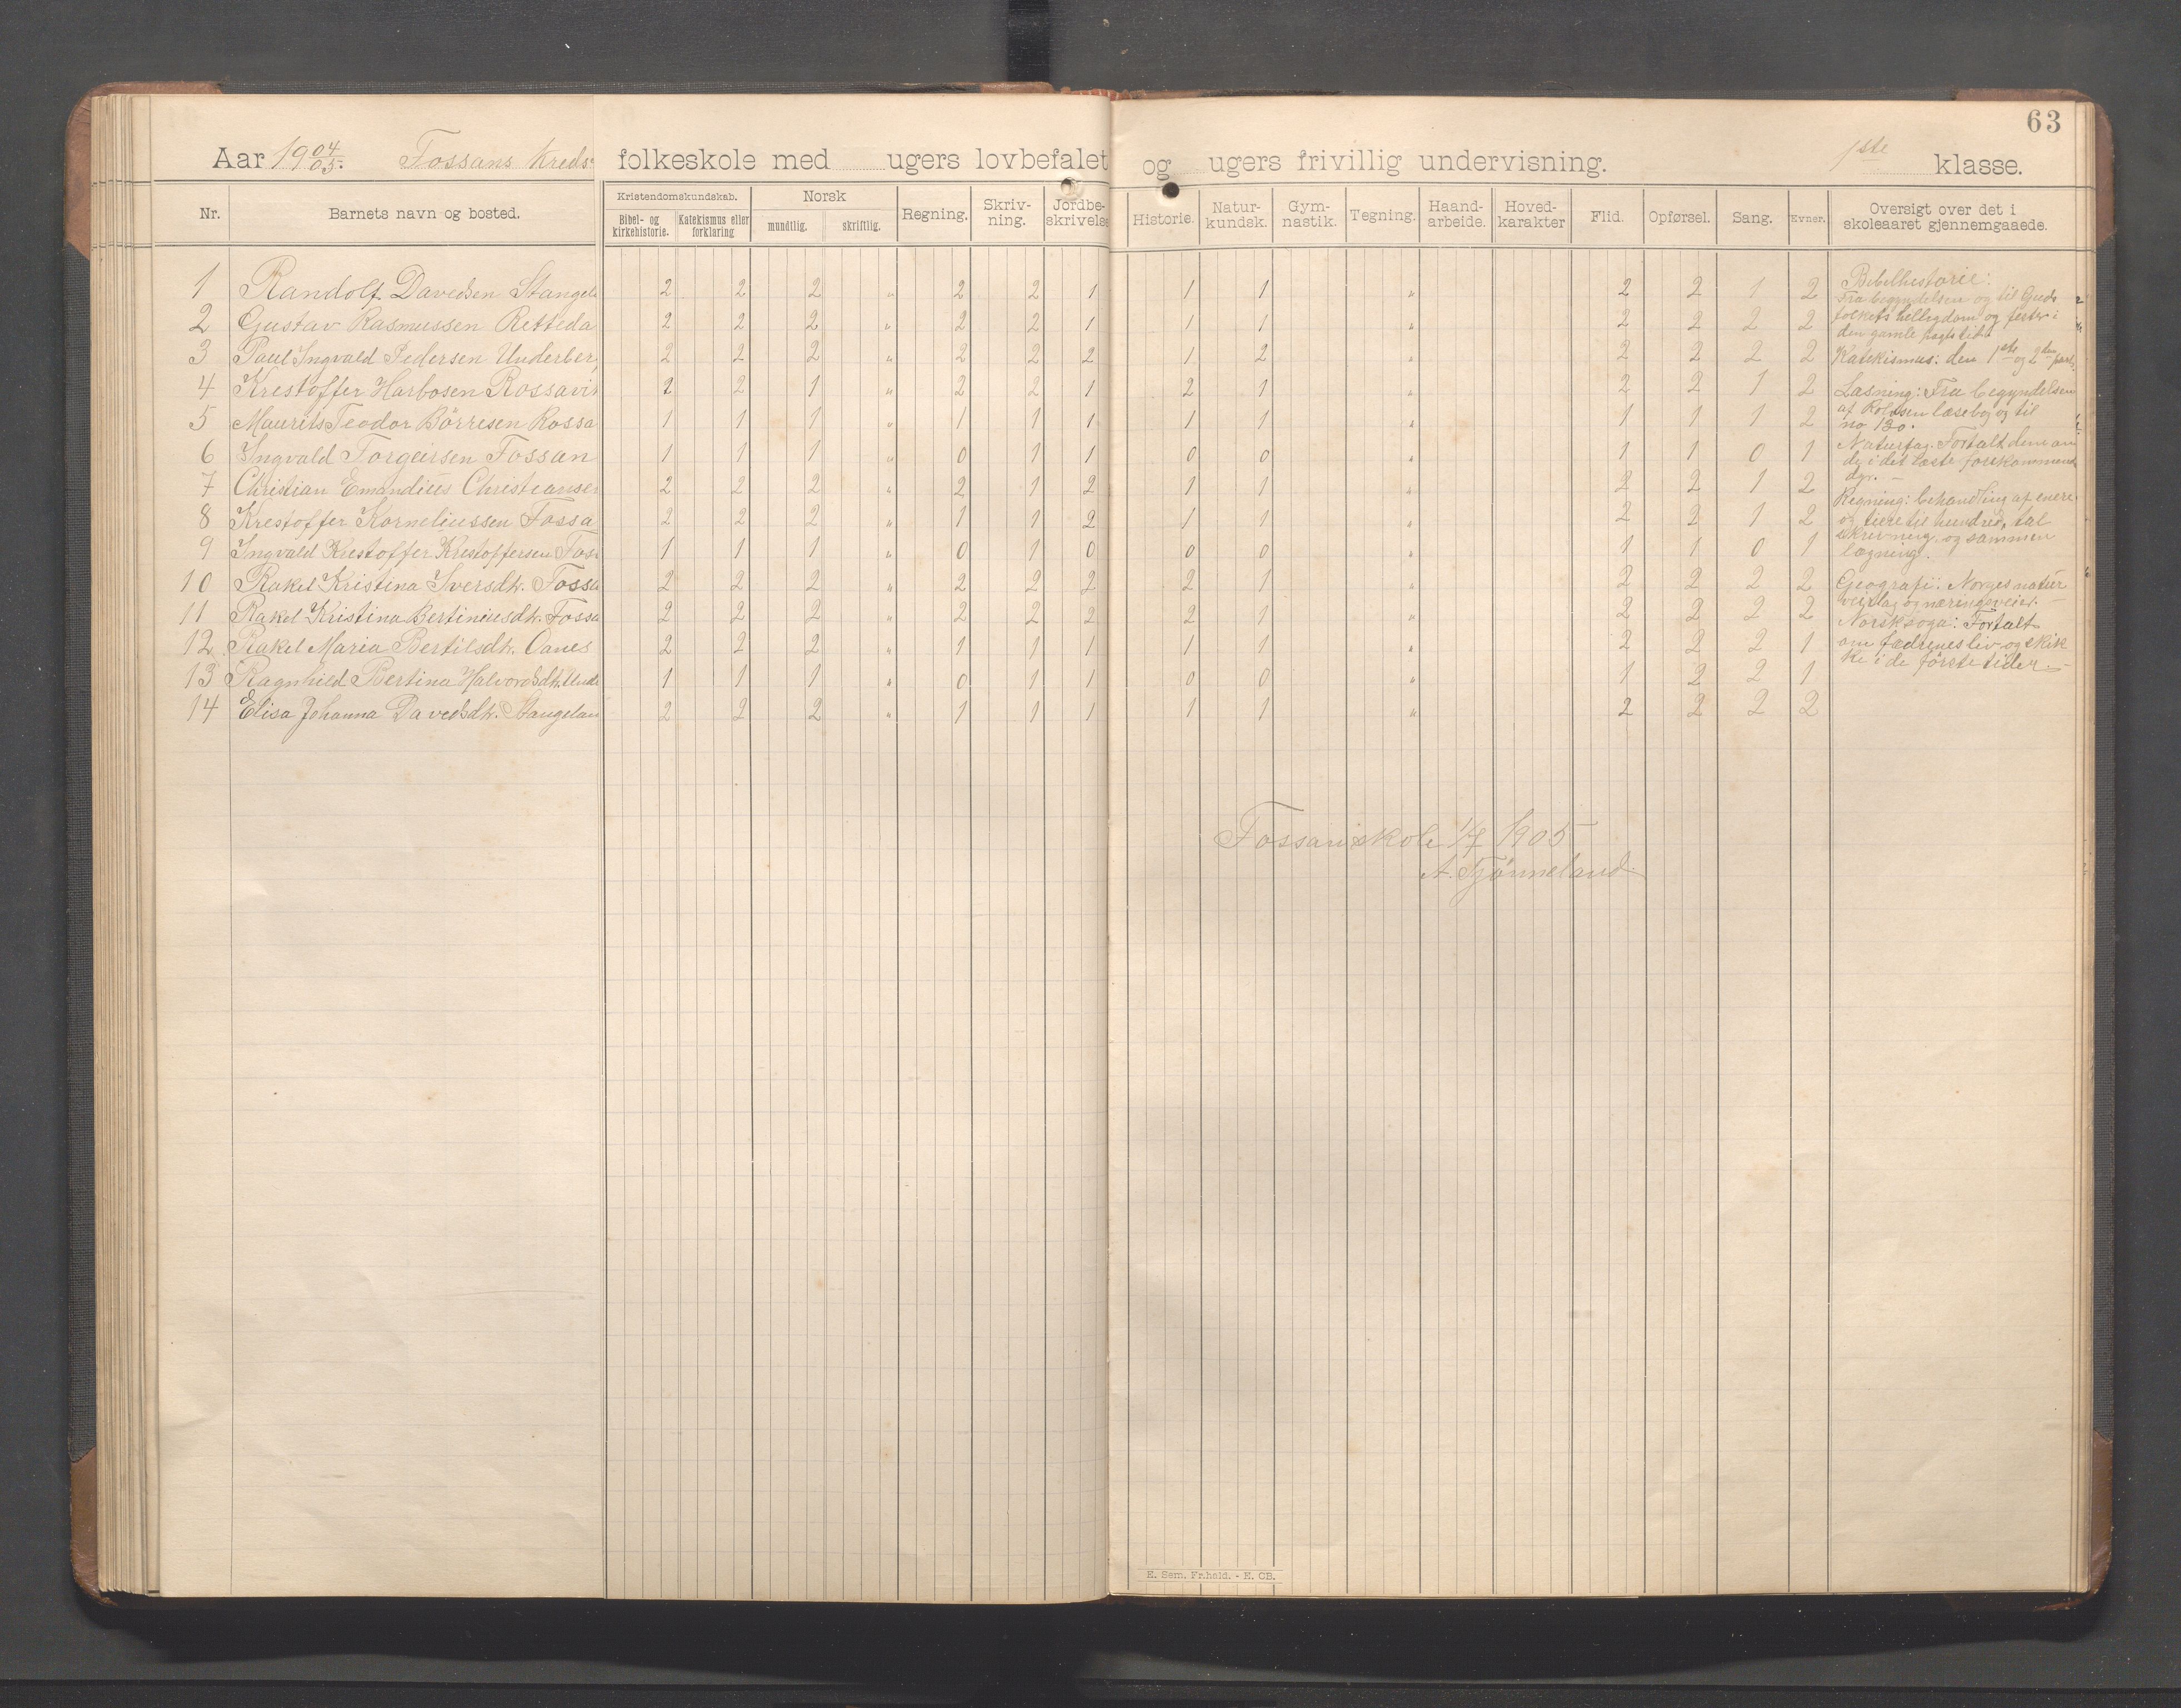 63
Aar 19 04/05. Fossans Kreds folkeskole med ugers lovbefalet og ugers frivillig undervisning. 1ste klasse.
Nr. Barnets navn og bosted. Kristendomskundskab. Bibel- og kirkehistorie. Katekismus eller forklaring Norsk mundtlig. skriftlig. Regning. Skriv-ning. Jordbe-skrivelse Historie. Natur-kundsk. Gym-nastik. Tegning. Haand-arbeide. Hoved-karakter Flid. Opførsel. Sang. Evner. Oversigt over det i skoleaaret gjennemgaaede.
1 Randolf Davedsen Stangel 2 2 2 " 2 2 1 1 1 " 2 2 1 2
2 Gustav Rasmussen Retteda 2 2 2 " 2 2 1 1 1 " 2 2 2 2
3 Paul Ingvald Pedersen Underber 2 2 2 " 2 2 2 1 2 " 2 2 2 2
4 Krestoffer Harbosen Rossavi 2 2 1 " 2 2 1 2 1 " 2 2 1 2
5 Maurits Teodor Börresen Rossa 1 1 1 " 1 1 1 1 1 " 1 1 1 2
6 Ingvald Torgeirsen Fossan 1 1 1 " 0 1 1 0 0 " 1 1 0 1
7 Christian Emandius Christiansen 2 2 2 " 2 1 2 1 1 " 2 2 1 2
8 Krestoffer Korneliussen Fossa 2 2 2 " 1 1 2 1 1 " 2 2 1 2
9 Ingvald Krestoffer Krestoffersen Foss 1 1 1 " 0 1 0 0 0 " 1 1 0 1
10 Rakel Kristina Iversdtr. Fossa 2 2 2 " 2 2 2 2 1 " 2 2 2 2
11 Rakel Kristina Bertiniusdtr. Fossa 2 2 2 " 2 2 2 2 1 " 2 2 2 2
12 Rakel Maria Bertilsdtr. Oanes 2 2 2 " 1 1 1 1 1 " 2 2 2 1
13 Ragnhild Bertina Halvordsdtr. Unde 1 1 1 " 0 1 1 0 0 " 1 2 2 1
14 Elisa Johanna Davedsdtr. Stangelan 2 2 2 " 1 1 1 1 1 " 2 2 2 2
Bibelhistorie:
Fra begyndelsen og til Guds
folkets helligdom og fester i
den gamle pagts tid.
Katekismus: den 1ste og 2den part.
Læsning: Fra begyndelsen
af Rolfsen læsebog til
no 130.
Naturfag. Fortalt dem om
de i det læste forekommende
dyr. —
Regning: behandling af enere
og tiere til hundred, tal
skrivning og sammen
lægning.
Geografi: Norges natur
veirlag og næringsveier.
Norsksoga: Fortalt
om fædrenes liv og skik
ke i de første tider. —
Fossan skole 1/7 1905
A. Tjønneland.
E. Sem. Fr.hald. - E. CB.